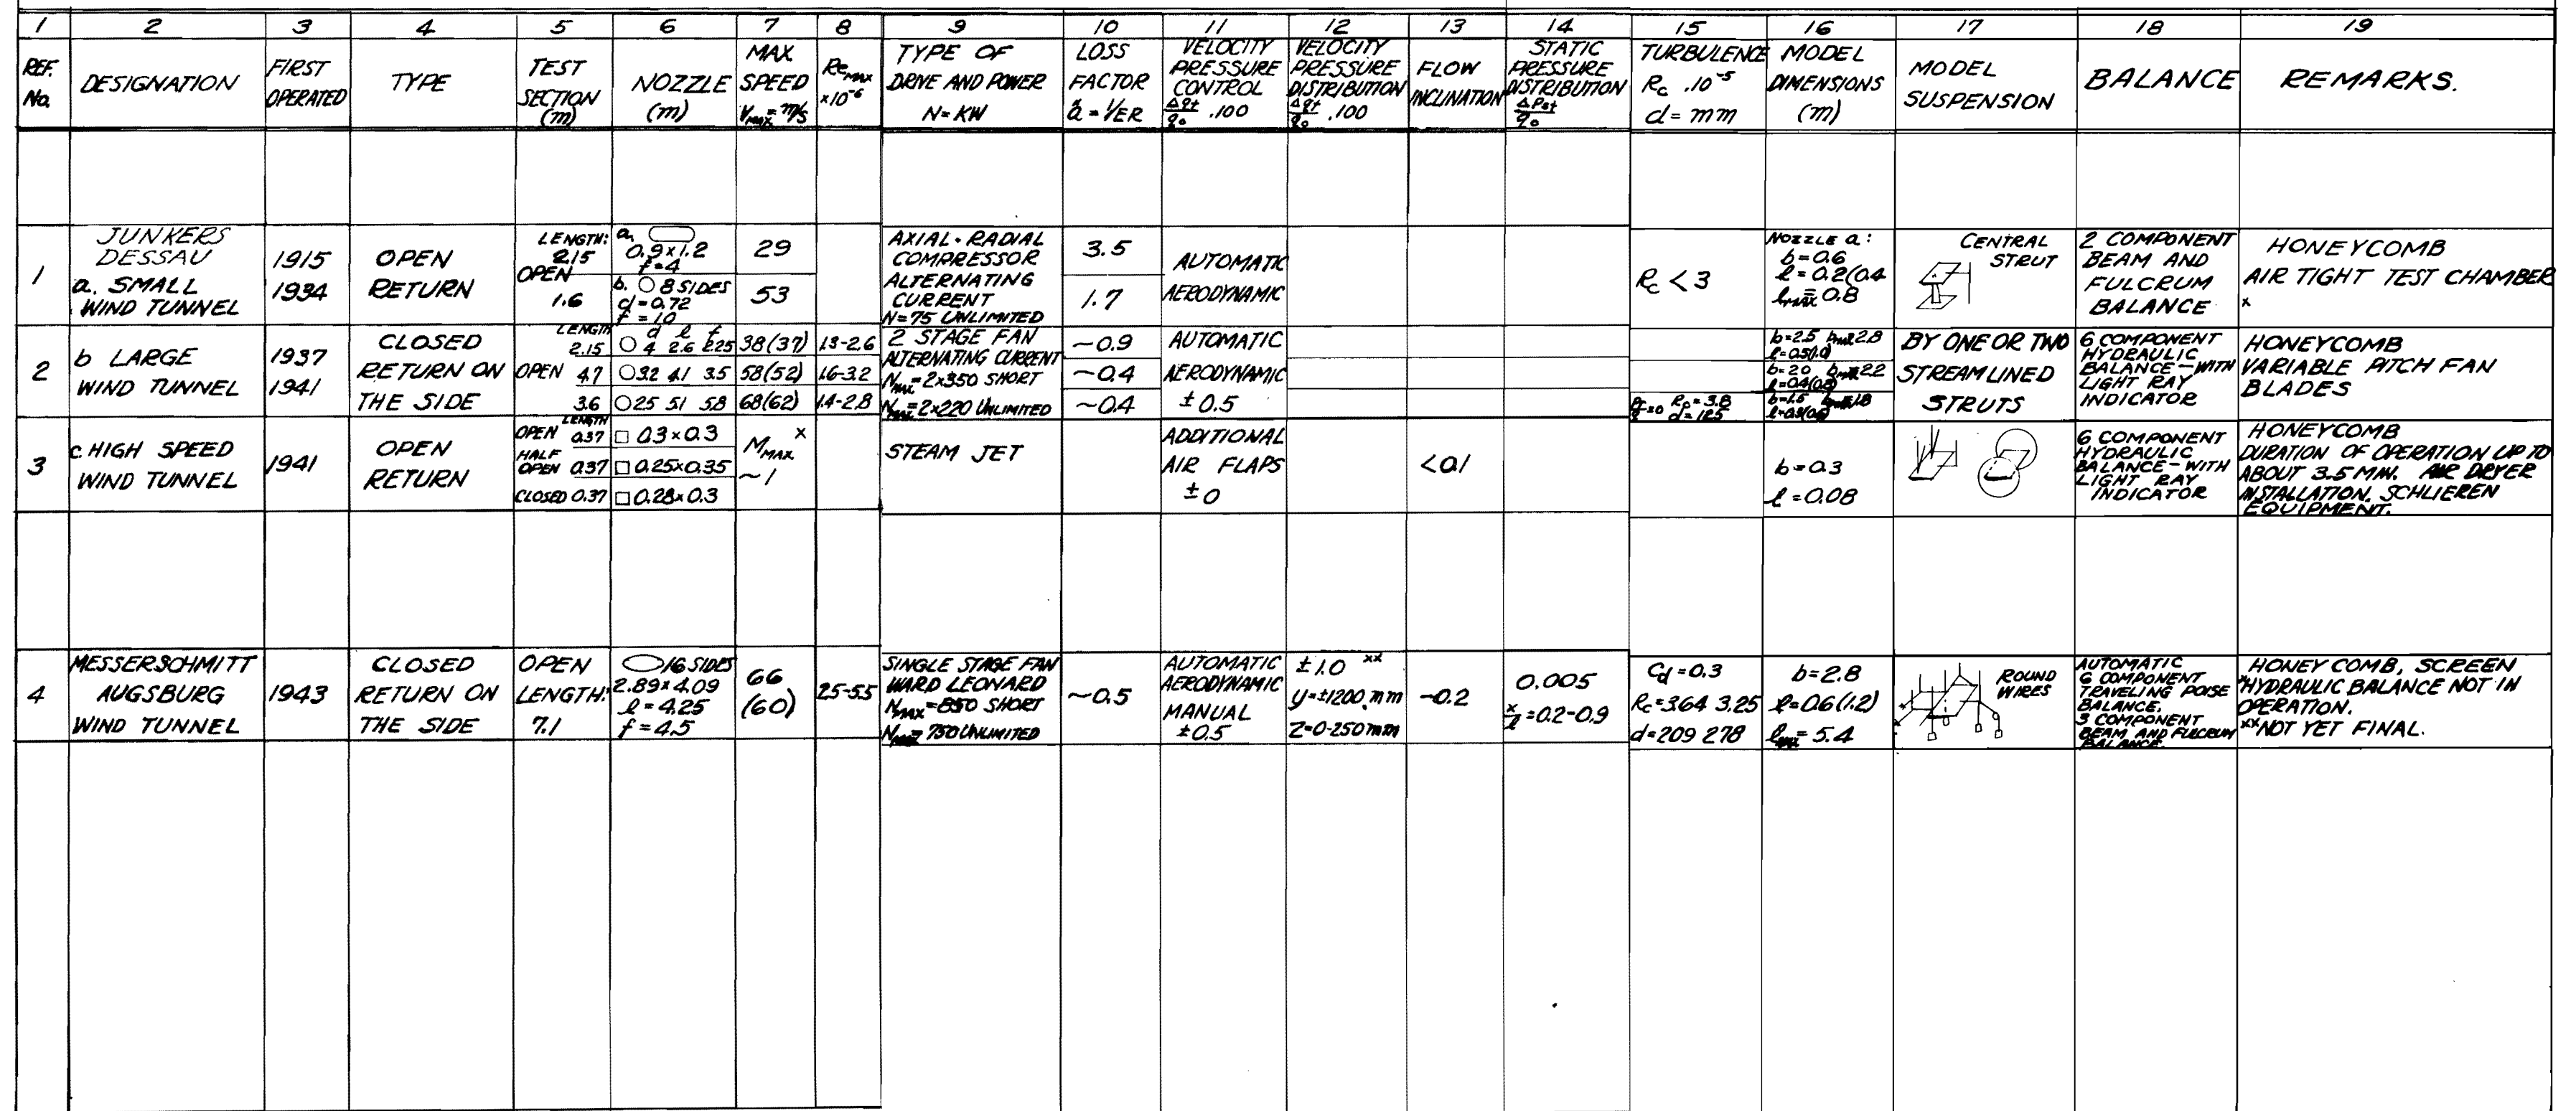 1 2 3 4 5 6 7 8 9 10 11 12 13 14 15 16 17 18 19
REF.
No.
DESIGNATION
FIRST
OPERATED
TYPE
TEST
SECTION
(m)
NOZZLE
(m)
MAX
SPEED
VMAX = m/s
ReMAX
×10⁻⁶
TYPE OF
DRIVE AND POWER
N=KW
LOSS
FACTOR
a = 1/ER
VELOCITY
PRESSURE
CONTROL
Δqt/q₀ .100
VELOCITY
PRESSURE
DISTRIBUTION
Δqt/q₀ .100
FLOW
INCLINATION
STATIC
PRESSURE
DISTRIBUTION
ΔPst/q₀
TURBULENCE
Rc .10⁻⁵
d = mm
MODEL
DIMENSIONS
(m)
MODEL
SUSPENSION
BALANCE
REMARKS.
1
JUNKERS
DESSAU
a. SMALL
WIND TUNNEL
1915
1934
OPEN
RETURN
LENGTH:
2.15
OPEN
1.6
a.
0.9×1.2
f=4
b. 8 SIDES
d=0.72
f=1.0
29
53
AXIAL-RADIAL
COMPRESSOR
ALTERNATING
CURRENT
N=75 UNLIMITED
3.5
1.7
AUTOMATIC
AERODYNAMIC
Rc <3
NOZZLE a:
b=0.6
l=0.2(0.4
lmax = 0.8
CENTRAL
STRUT
2 COMPONENT
BEAM AND
FULCRUM
BALANCE
HONEYCOMB
AIR TIGHT TEST CHAMBER
x
2
b LARGE
WIND TUNNEL
1937
1941
CLOSED
RETURN ON
THE SIDE
LENGTH
2.15
OPEN 4.7
3.6
d l f
4 2.6 2.25
3.2 4.1 3.5
2.5 5.1 5.8
38(37)
58(52)
68(62)
1.3-2.6
1.6-3.2
1.4-2.8
2 STAGE FAN
ALTERNATING CURRENT
Nmax=2×350 SHORT
Nmax=2×220 UNLIMITED
~0.9
~0.4
~0.4
AUTOMATIC
AERODYNAMIC
±0.5
Rc=3.8
d=125
b=2.5 bmax 2.8
l=0.5(1.0)
b=2.0 bmax 2.2
l=0.4(0.8)
b=1.5 bmax=1.8
BY ONE OR TWO
STREAMLINED
STRUTS
6 COMPONENT
HYDRAULIC
BALANCE-WITH
LIGHT RAY
INDICATOR
HONEYCOMB
VARIABLE PITCH FAN
BLADES
3
c. HIGH SPEED
WIND TUNNEL
1941
OPEN
RETURN
LENGTH
OPEN 0.37
HALF
OPEN 0.37
CLOSED 0.37
0.3×0.3
0.25×0.35
0.28×0.3
MMAX x
~1
STEAM JET
ADDITIONAL
AIR FLAPS
±0
<0.1
b=0.3
l=0.08
6 COMPONENT
HYDRAULIC
BALANCE-WITH
LIGHT RAY
INDICATOR
HONEYCOMB
DURATION OF OPERATION UP TO
ABOUT 3.5 MIN. AIR DRYER
INSTALLATION. SCHLIEREN
EQUIPMENT.
4
MESSERSCHMITT
AUGSBURG
WIND TUNNEL
1943
CLOSED
RETURN ON
THE SIDE
OPEN
LENGTH:
7.1
16 SIDES
2.89×4.09
l=4.25
f=4.5
66
(60)
2.5-5.5
SINGLE STAGE FAN
WARD LEONARD
Nmax=850 SHORT
Nmax=750 UNLIMITED
~0.5
AUTOMATIC
AERODYNAMIC
MANUAL
±0.5
±1.0 xx
y=±1200 mm
Z=0-250 mm
~0.2
0.005
x/l=0.2-0.9
Cd=0.3
Rc=3.64 3.25
d=209 278
b=2.8
l=0.6(1.2)
lmax=5.4
ROUND
WIRES
AUTOMATIC
6 COMPONENT
TRAVELING POISE
BALANCE.
3 COMPONENT
BEAM AND FULCRUM
BALANCE.
HONEY COMB, SCREEN
xHYDRAULIC BALANCE NOT IN
OPERATION.
xxNOT YET FINAL.